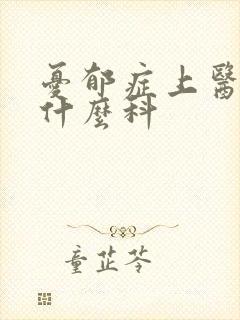 憂郁症上醫
什麼科
童芷苓